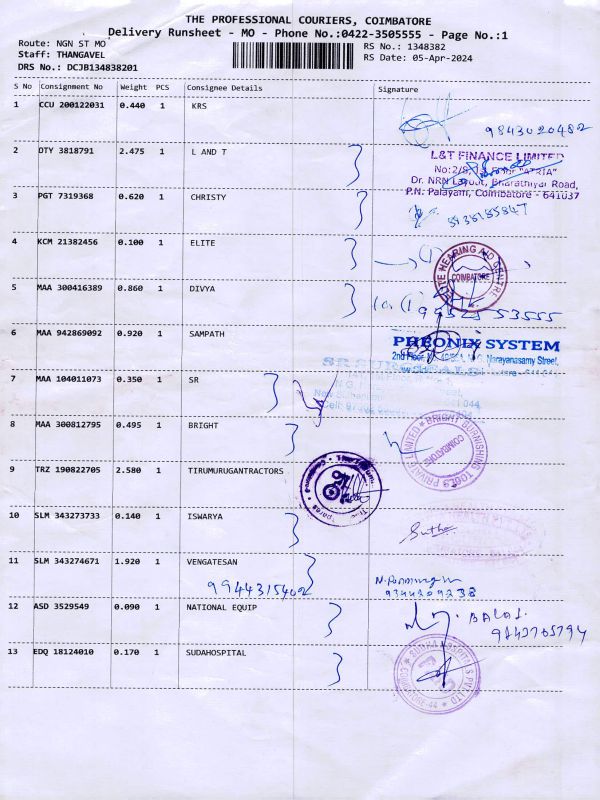 THE PROFESSIONAL COURIERS, COIMBATORE
Delivery Runsheet - MO - Phone No.:0422-3505555 - Page No.:1
Route: NGN ST MO
Staff: THANGAVEL
DRS No.: DCJB134838201
RS No.: 1348382
RS Date: 05-Apr-2024
S No Consignment No Weight PCS Consignee Details Signature
1 CCU 200122031 0.440 1 KRS
9843020482
2 DTY 3818791 2.475 1 L AND T
L&T FINANCE LIMITED
"ATRIA"
Dr. NRN Layout, Bharathiyar Road,
P.N. Palayam, Coimbatore - 641037
3 PGT 7319368 0.620 1 CHRISTY
4 KCM 21382456 0.100 1 ELITE
ELITE HEARING AID CENTRE
COIMBATORE
5 MAA 300416389 0.860 1 DIVYA
6 MAA 942869092 0.920 1 SAMPATH
PHEONIX SYSTEM
Narayanasamy Street,
7 MAA 104011073 0.350 1 SR
8 MAA 300812795 0.495 1 BRIGHT
BRIGHT BURNISHING TOOLS PRIVATE LIMITED
COIMBATORE
9 TRZ 190822705 2.580 1 TIRUMURUGANTRACTORS
10 SLM 343273733 0.140 1 ISWARYA
Sutha
11 SLM 343274671 1.920 1 VENGATESAN
9944315402
9344209238
12 ASD 3529549 0.090 1 NATIONAL EQUIP
BALAJI
9842765794
13 EDQ 18124010 0.170 1 SUDAHOSPITAL
SUDHA HOSPITALS PVT LTD